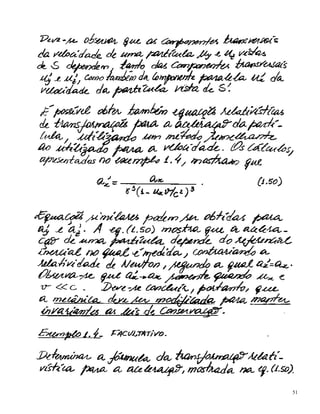 Deve-se observar que as componentes transversais
da velocidade de uma partícula, uy e uz vistas
de S dependem, tanto das componentes transversais
u'y e u'z, como também da componente paralela u'x da
velocidade da partícula vista de S'.
É possível obter também equações relativísticas
de transformação para a aceleração da partí-
cula, utilizando um método semelhante
ao utilizado para a velocidade. Os cálculos,
apresentados no exemplo 1.4, mostram que
a'x = ax / γ³(1 - ux v/c²)³ . (1.50)
Equações similares podem ser obtidas para
a'y e a'z. A eq. (1.50) mostra que a acelera-
ção de uma partícula depende do referencial
inercial no qual é medida, contrariando a
relatividade de Newton, segundo a qual a'x = ax.
Observa-se que a'x → ax somente quando ux e
v << c. Deve-se concluir, portanto, que
a mecânica deve ser modificada para manter
invariantes as leis de conservação.
Exemplo 1.4. FACULTATIVO.
Determinar a fórmula da transformação relati-
vística para a aceleração, mostrada na eq. (1.50).
51